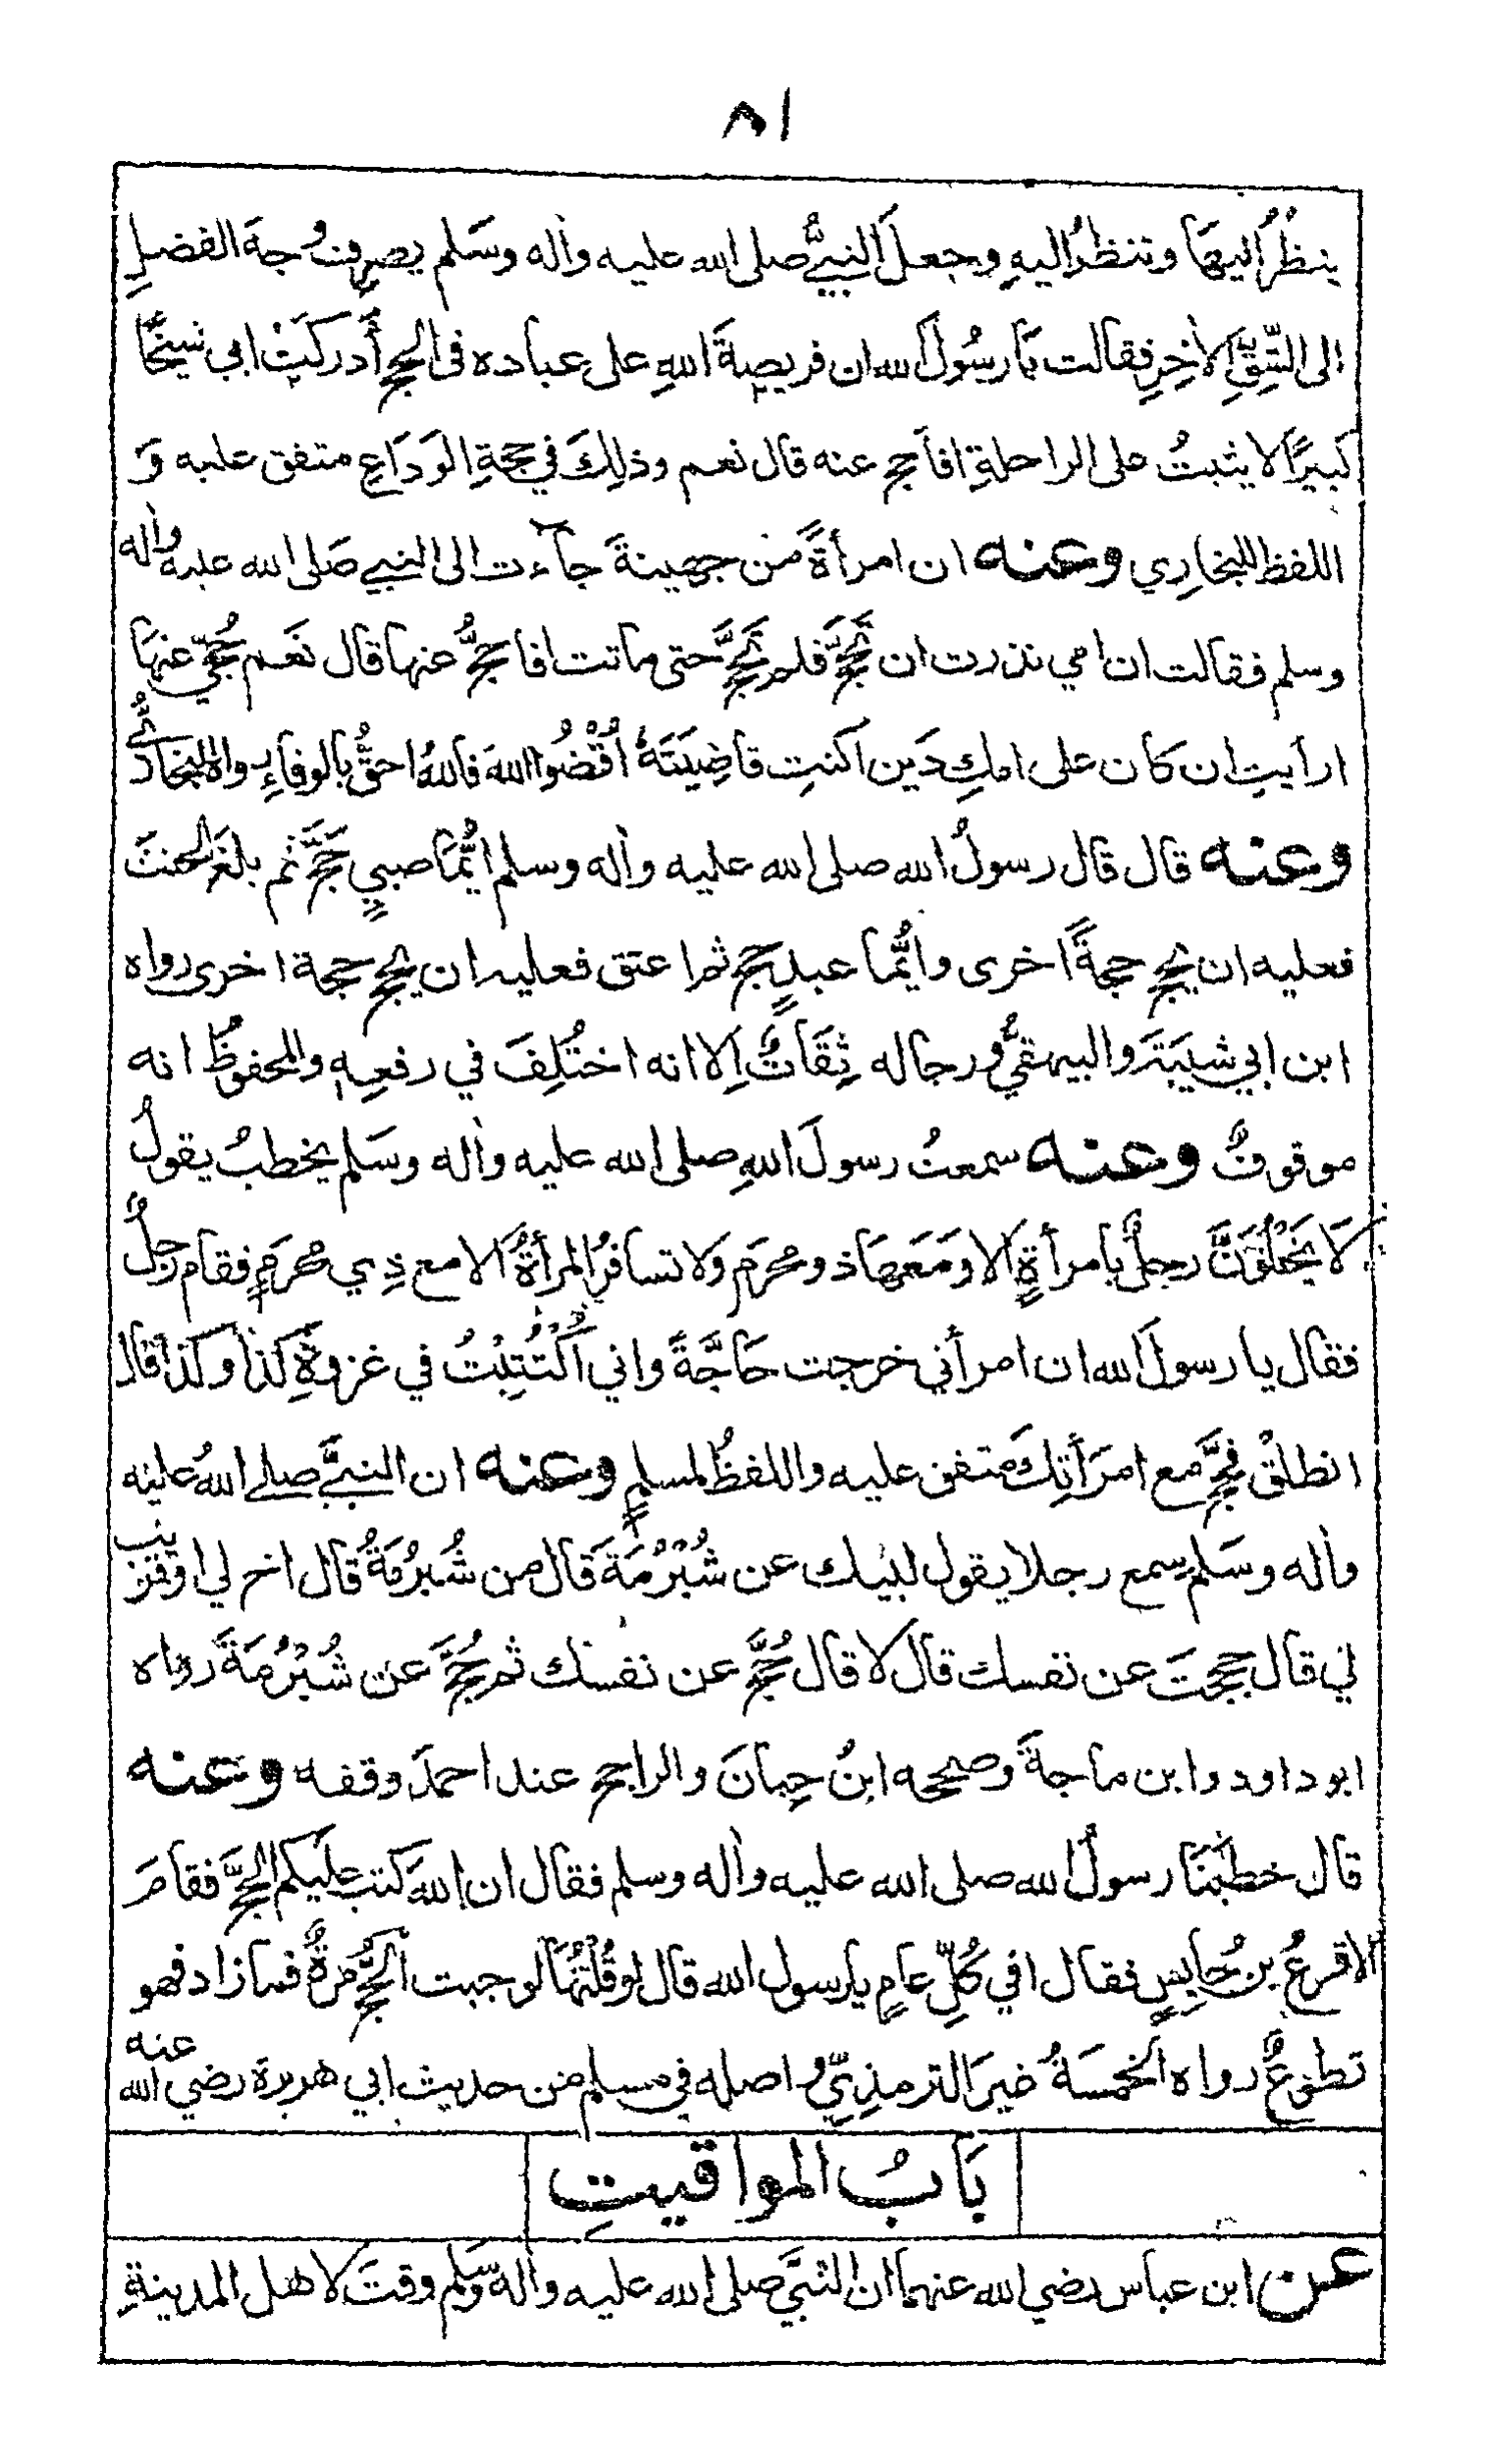 ٨١
ينظُرُ اليهَا وتنظُرُ اليهِ وجعلَ النبيُّ صلى الله عليه واٰله وسَلم يصرِف وجهَ الفضلِ
الى الشِّقِّ الاٰخِرِ فقالت يَا رسُولَ الله ان فريضةَ اللهِ على عباده فى الحجِ أدركَتْ ابي شيخًا
كبيرًا لا يثبتُ على الراحلةِ افأحج عنه قال نعم وذٰلِكَ في حجةِ الوَدَاعِ متفق عليه وَ
اللفظ للبخارِي وعنه ان امرأةً من جهينةَ جآءت الى النبي صَلى الله عليه واٰله
وسلم فقالت ان امي نذرت ان تحجَّ فلم تحجَّ حتى ماتت افاحجُّ عنها قال نَعَم حُجّي عنهَا
ارأيتِ ان كان على امكِ دَين اكنتِ قاضِيَتَهُ أُقْضُوا اللهَ فاللهُ احقُّ بالوفاءِ رواه البخاريُّ
وعنه قال قال رسولُ الله صلى الله عليه واٰله وسلم ايُّمَا صبيٍ حَجَّ ثم بلغَ الحنثَ
فعليه ان يحج حجةً اخرى وايُّما عبدٍ حج ثم اعتق فعليه ان يحج حجة اخرى رواه
ابن ابي شيبَةَ والبيهقيُّ ورجاله ثِقَاتٌ اِلا انه اختُلِفَ في رفعِهٖ والمحفوظُ انه
موقوفٌ وعنه سمعتُ رسولَ اللهِ صلى الله عليه واٰله وسَلم يخطبُ يقولُ
لَا يَخْلُوَنَّ رجلٌ بامرأةٍ الا وَمَعَهَا ذو محرَم ولا تسافرُ المرأةُ الا مع ذِي محرَمٍ فقام رجلٌ
فقال يا رسولَ الله ان امرأتي خرجت حَاجَّةً واني اُكْتُتِبْتُ في غزوةِ كذا وكذا قال
انطلقْ فحُجَّ مع امرَأتِكَ متفق عليه واللفظُ لمسلمٍ وعنه ان النبيَّ صلى اللهُ عليه
واٰله وسَلم سمع رجلا يقول لبيك عن شُبْرُمَةَ قَال من شُبرُمَةُ قال اخ لي او قريب
لي قال حججتَ عن نفسك قال لا قال حُجَّ عن نفسك ثم حُجَّ عن شُبْرُمَةَ رواه
ابو داود وابن ماجةَ وصححه ابنُ حِبانَ والراجح عند احمدَ وقفه وعنه
قال خطبَنَا رسولُ الله صلى الله عليه واٰله وسلم فقال ان اللهَ كتب عليكم الحجَّ فقامَ
الاقرعُ بن حَابِسٍ فقال افي كُلِّ عامٍ يا رسول الله قال لو قُلْتُهَا لوجبت الحجُّ مَرةٌ فما زاد فهو
تطوعٌ رواه الخمسَةُ غيرَ الترمذِيِّ واصله في مسلم من حديث ابي هريرة رضي الله عنه
بَابُ المواقيتِ
عن ابن عباس رضي الله عنهما ان النبيَّ صلى الله عليه واٰله وسَلم وقتَ لاهل المدينةِ